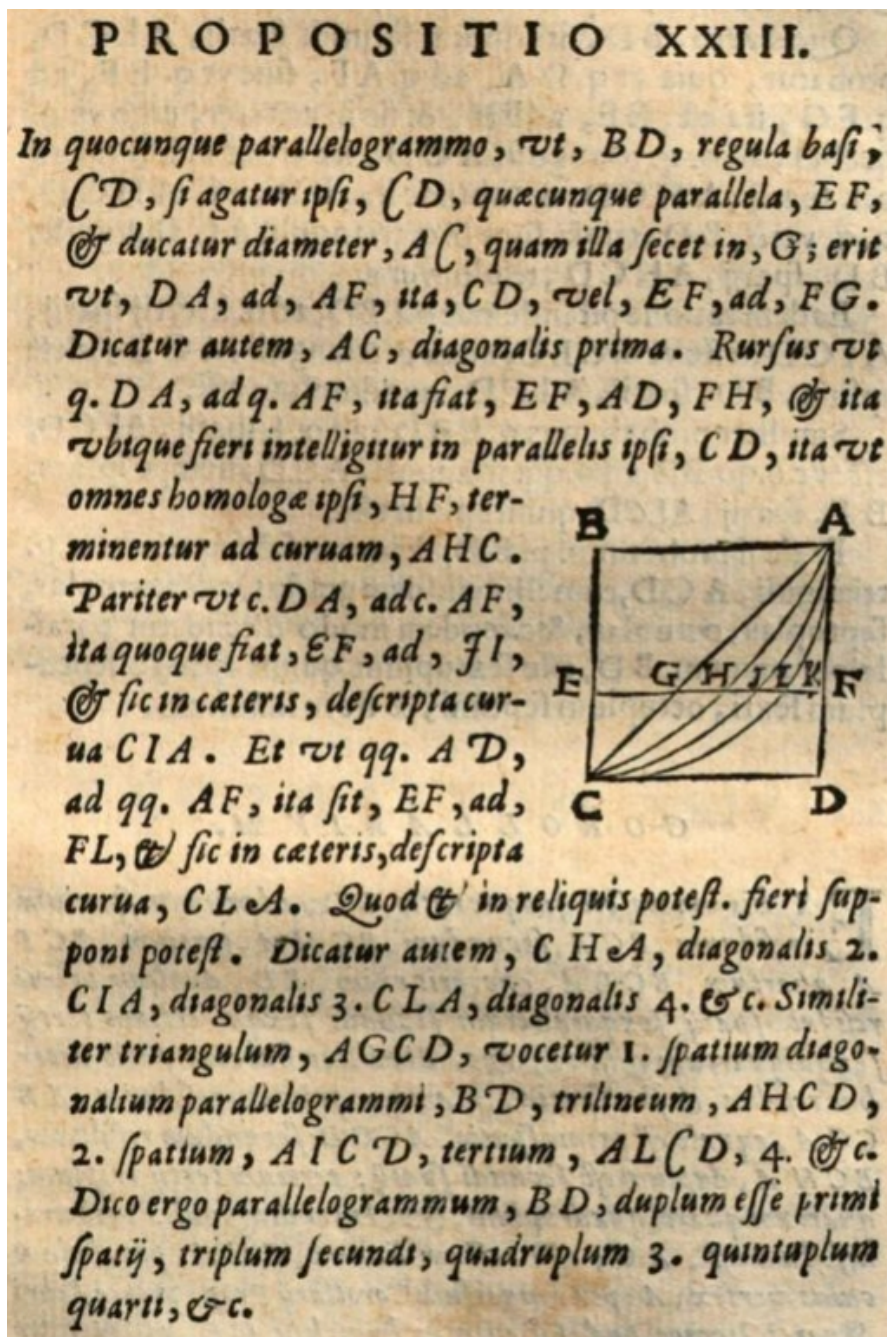 PROPOSITIO XXIII.
In quocunque parallelogrammo, vt, BD, regula basi,
CD, si agatur ipsi, CD, quæcunque parallela, EF,
& ducatur diameter, AC, quam illa secet in, G; erit
vt, DA, ad, AF, ita, CD, vel, EF, ad, FG.
Dicatur autem, AC, diagonalis prima. Rursus vt
q. DA, ad q. AF, ita fiat, EF, AD, FH, & ita
vbique fieri intelligitur in parallelis ipsi, CD, ita vt
omnes homologæ ipsi, HF, ter-
minentur ad curuam, AHC.
Pariter vt c. DA, ad c. AF,
ita quoque fiat, EF, ad, FI,
& sic in cæteris, descripta cur-
ua CIA. Et vt qq. AD,
ad qq. AF, ita sit, EF, ad,
FL, & sic in cæteris, descripta
curua, CLA. Quod & in reliquis potest. fieri sup-
poni potest. Dicatur autem, CHA, diagonalis 2.
CIA, diagonalis 3. CLA, diagonalis 4. &c. Simili-
ter triangulum, AGCD, vocetur 1. spatium diago-
nalium parallelogrammi, BD, trilineum, AHCD,
2. spatium, AICD, tertium, ALCD, 4. &c.
Dico ergo parallelogrammum, BD, duplum esse primi
spatij, triplum secundi, quadruplum 3. quintuplum
quarti, &c.
B A
E G H I L F
C D